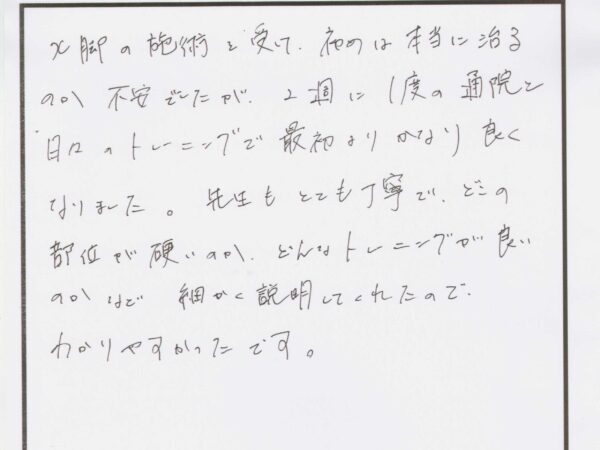 X脚の施術を受けて、初めは本当に治る
のか不安でしたが、2週に1度の通院と
日々のトレーニングで最初よりかなり良く
なりました。先生もとても丁寧で、どこの
部位が硬いのか、どんなトレーニングが良い
のかなど細かく説明してくれたので、
わかりやすかったです。